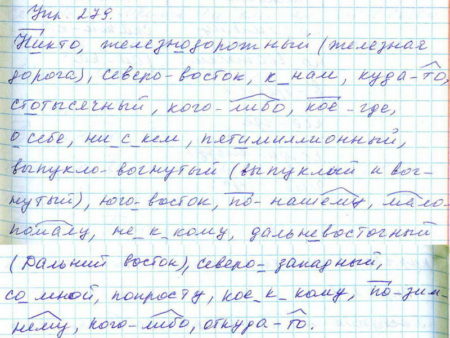 Упр. 279.
Никто, железнодорожный (железная
дорога), северо-восток, к нам, куда-то,
стотысячный, кого-либо, кое-где,
о себе, ни с кем, пятимиллионный,
выпукло-вогнутый (выпуклый и вог-
нутый), юго-восток, по-нашему, мало-
помалу, не к кому, дальневосточный
(Дальний восток), северо-западный,
со мной, попросту, кое к кому, по-зим-
нему, кого-либо, откуда-то.